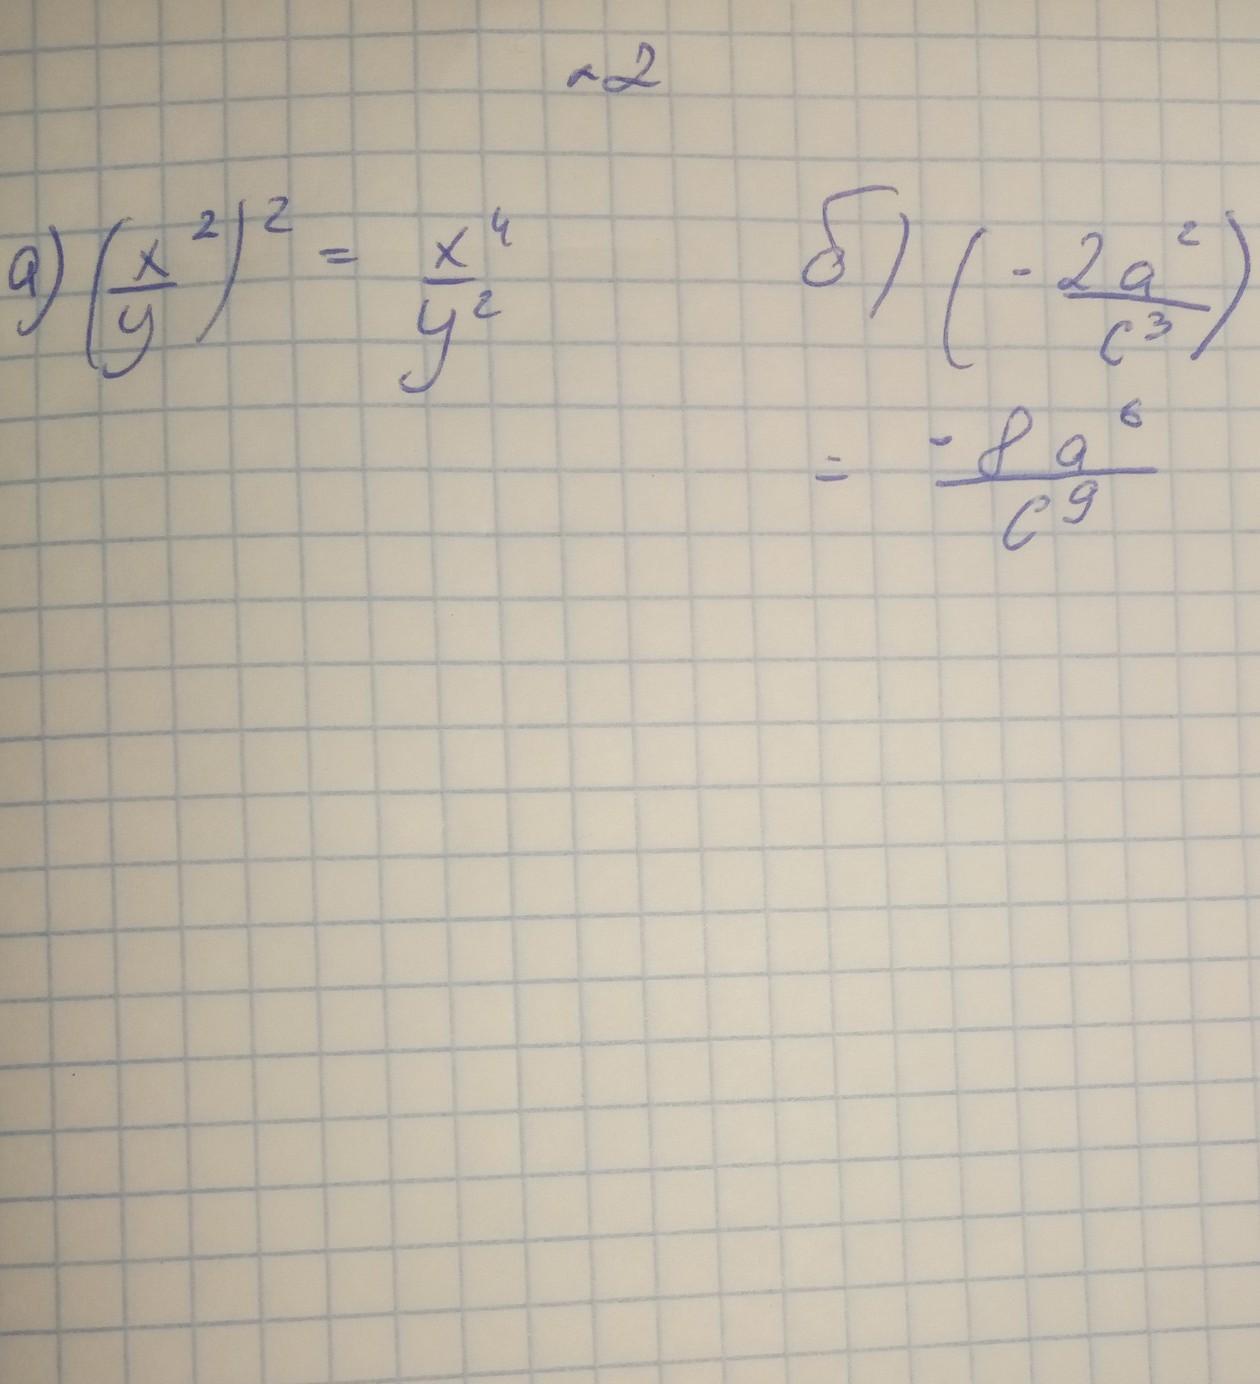 ~2
а) (x²/y)² = x⁴/y²
б) (-2a²/c³)
= -8a⁶/c⁹